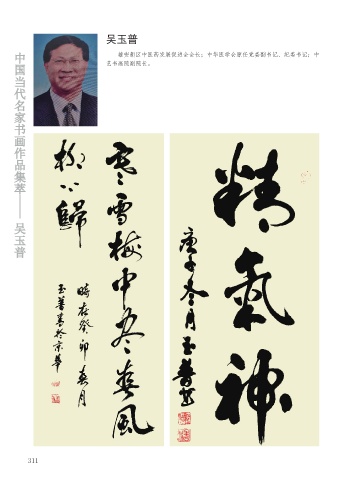 吴玉普
被树新区中医药发展促进会会长；中华医学会原任党委副书记、纪委书记；中
艺书画院副院长。
中国当代名家书画作品集萃——吴玉普
精氣神
庚子冬月玉普書
寒雪梅中盡春風
柳上歸
時在癸卯春月
玉普書於京華
311